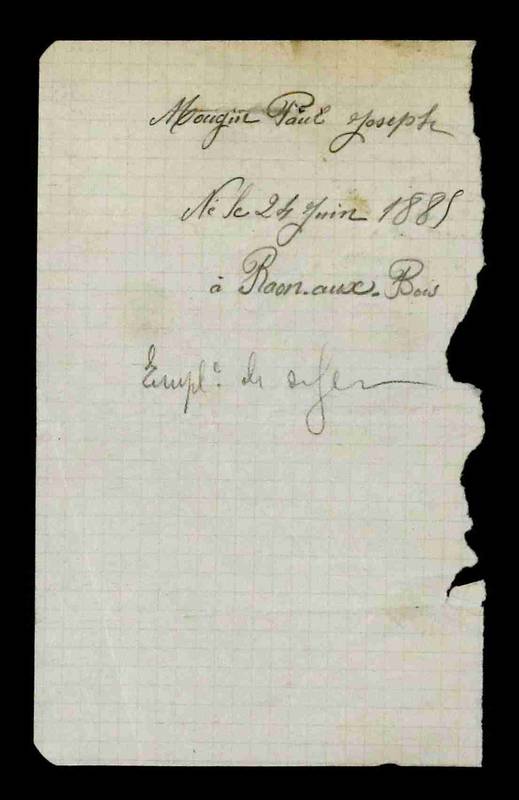 Mougin Paul Joseph
Né le 24 Juin 1885
à Raon-aux-Bois
Emplé de